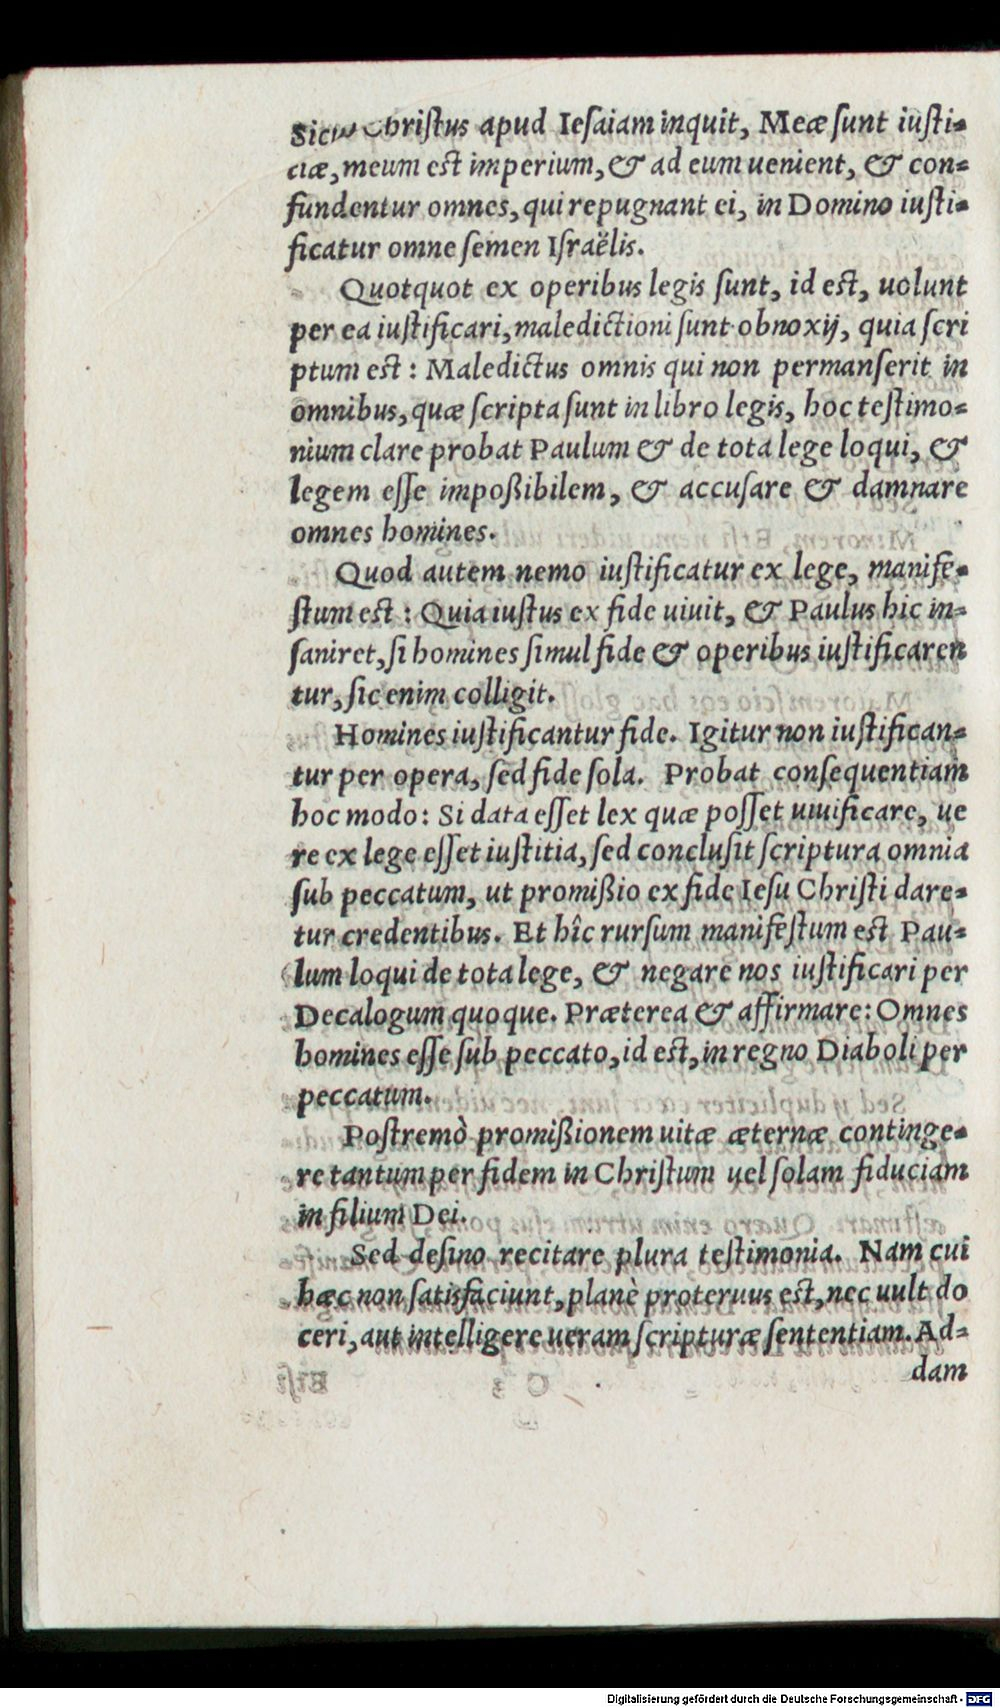 Sicut Christus apud Iesaiam inquit, Meæ sunt iusti-
ciæ, meum est imperium, & ad eum uenient, & con-
fundentur omnes, qui repugnant ei, in Domino iusti-
ficatur omne semen Israëlis.
Quotquot ex operibus legis sunt, id est, uolunt
per ea iustificari, maledictioni sunt obnoxij, quia scri
ptum est: Maledictus omnis qui non permanserit in
omnibus, quæ scripta sunt in libro legis, hoc testimo-
nium clare probat Paulum & de tota lege loqui, &
legem esse impoßibilem, & accusare & damnare
omnes homines.
Quod autem nemo iustificatur ex lege, manife-
stum est: Quia iustus ex fide uiuit, & Paulus hic in-
saniret, si homines simul fide & operibus iustificaren
tur, sic enim colligit.
Homines iustificantur fide. Igitur non iustifican-
tur per opera, sed fide sola. Probat consequentiam
hoc modo: Si data esset lex quæ posset uiuificare, ue
re ex lege esset iustitia, sed conclusit scriptura omnia
sub peccatum, ut promißio ex fide Iesu Christi dare-
tur credentibus. Et hîc rursum manifestum est Pau-
lum loqui de tota lege, & negare nos iustificari per
Decalogum quoque. Præterea & affirmare: Omnes
homines esse sub peccato, id est, in regno Diaboli per
peccatum.
Postremò promißionem uitæ æternæ continge-
re tantum per fidem in Christum uel solam fiduciam
in filium Dei.
Sed desino recitare plura testimonia. Nam cui
hæc non satisfaciunt, planè proteruus est, nec uult do
ceri, aut intelligere ueram scripturæ sententiam. Ad-
dam
Digitalisierung gefördert durch die Deutsche Forschungsgemeinschaft - DFG